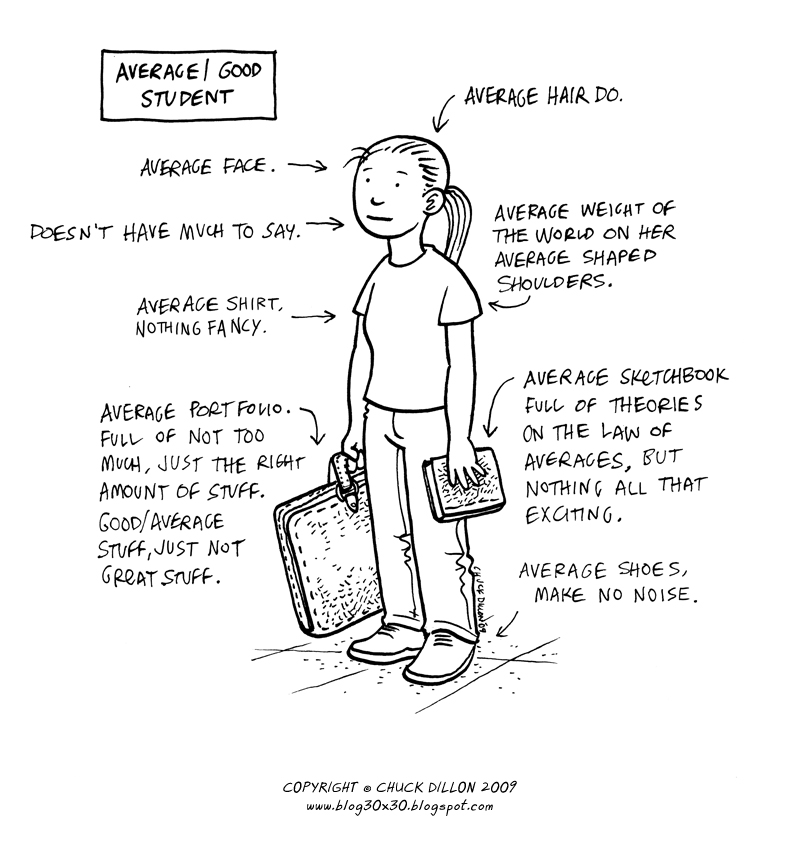 AVERAGE/ GOOD
STUDENT
AVERAGE HAIR DO.
AVERAGE FACE.
DOESN'T HAVE MUCH TO SAY.
AVERAGE WEIGHT OF
THE WORLD ON HER
AVERAGE SHAPED
SHOULDERS.
AVERAGE SHIRT,
NOTHING FANCY.
AVERAGE PORTFOLIO.
FULL OF NOT TOO
MUCH, JUST THE RIGHT
AMOUNT OF STUFF.
GOOD/AVERAGE
STUFF, JUST NOT
GREAT STUFF.
AVERAGE SKETCHBOOK
FULL OF THEORIES
ON THE LAW OF
AVERAGES, BUT
NOTHING ALL THAT
EXCITING.
AVERAGE SHOES,
MAKE NO NOISE.
CHUCK DILLON '09
COPYRIGHT © CHUCK DILLON 2009
www.blog30x30.blogspot.com